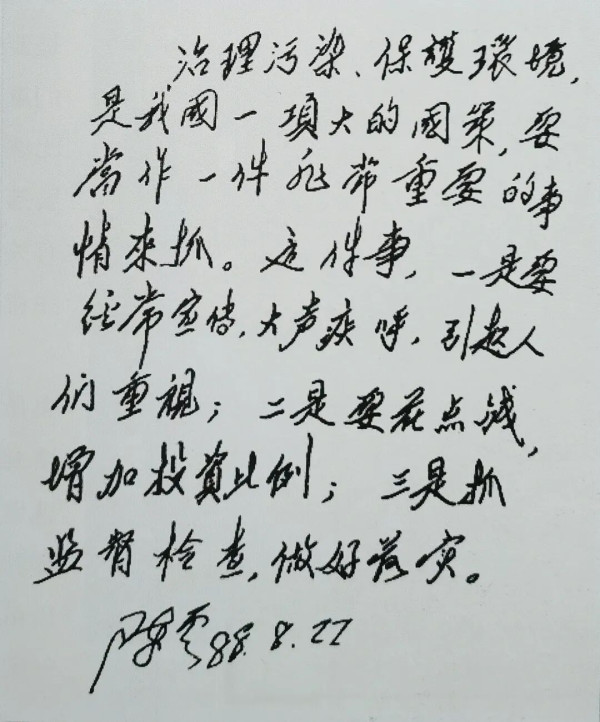 治理污染、保護環境，
是我國一項大的國策，要
當作一件非常重要的事
情来抓。这件事，一是要
经常宣传，大声疾呼，引起人
们重視；二是要花点钱，
增加投資比例；三是抓
监督检查，做好落实。
陈云 88.8.22